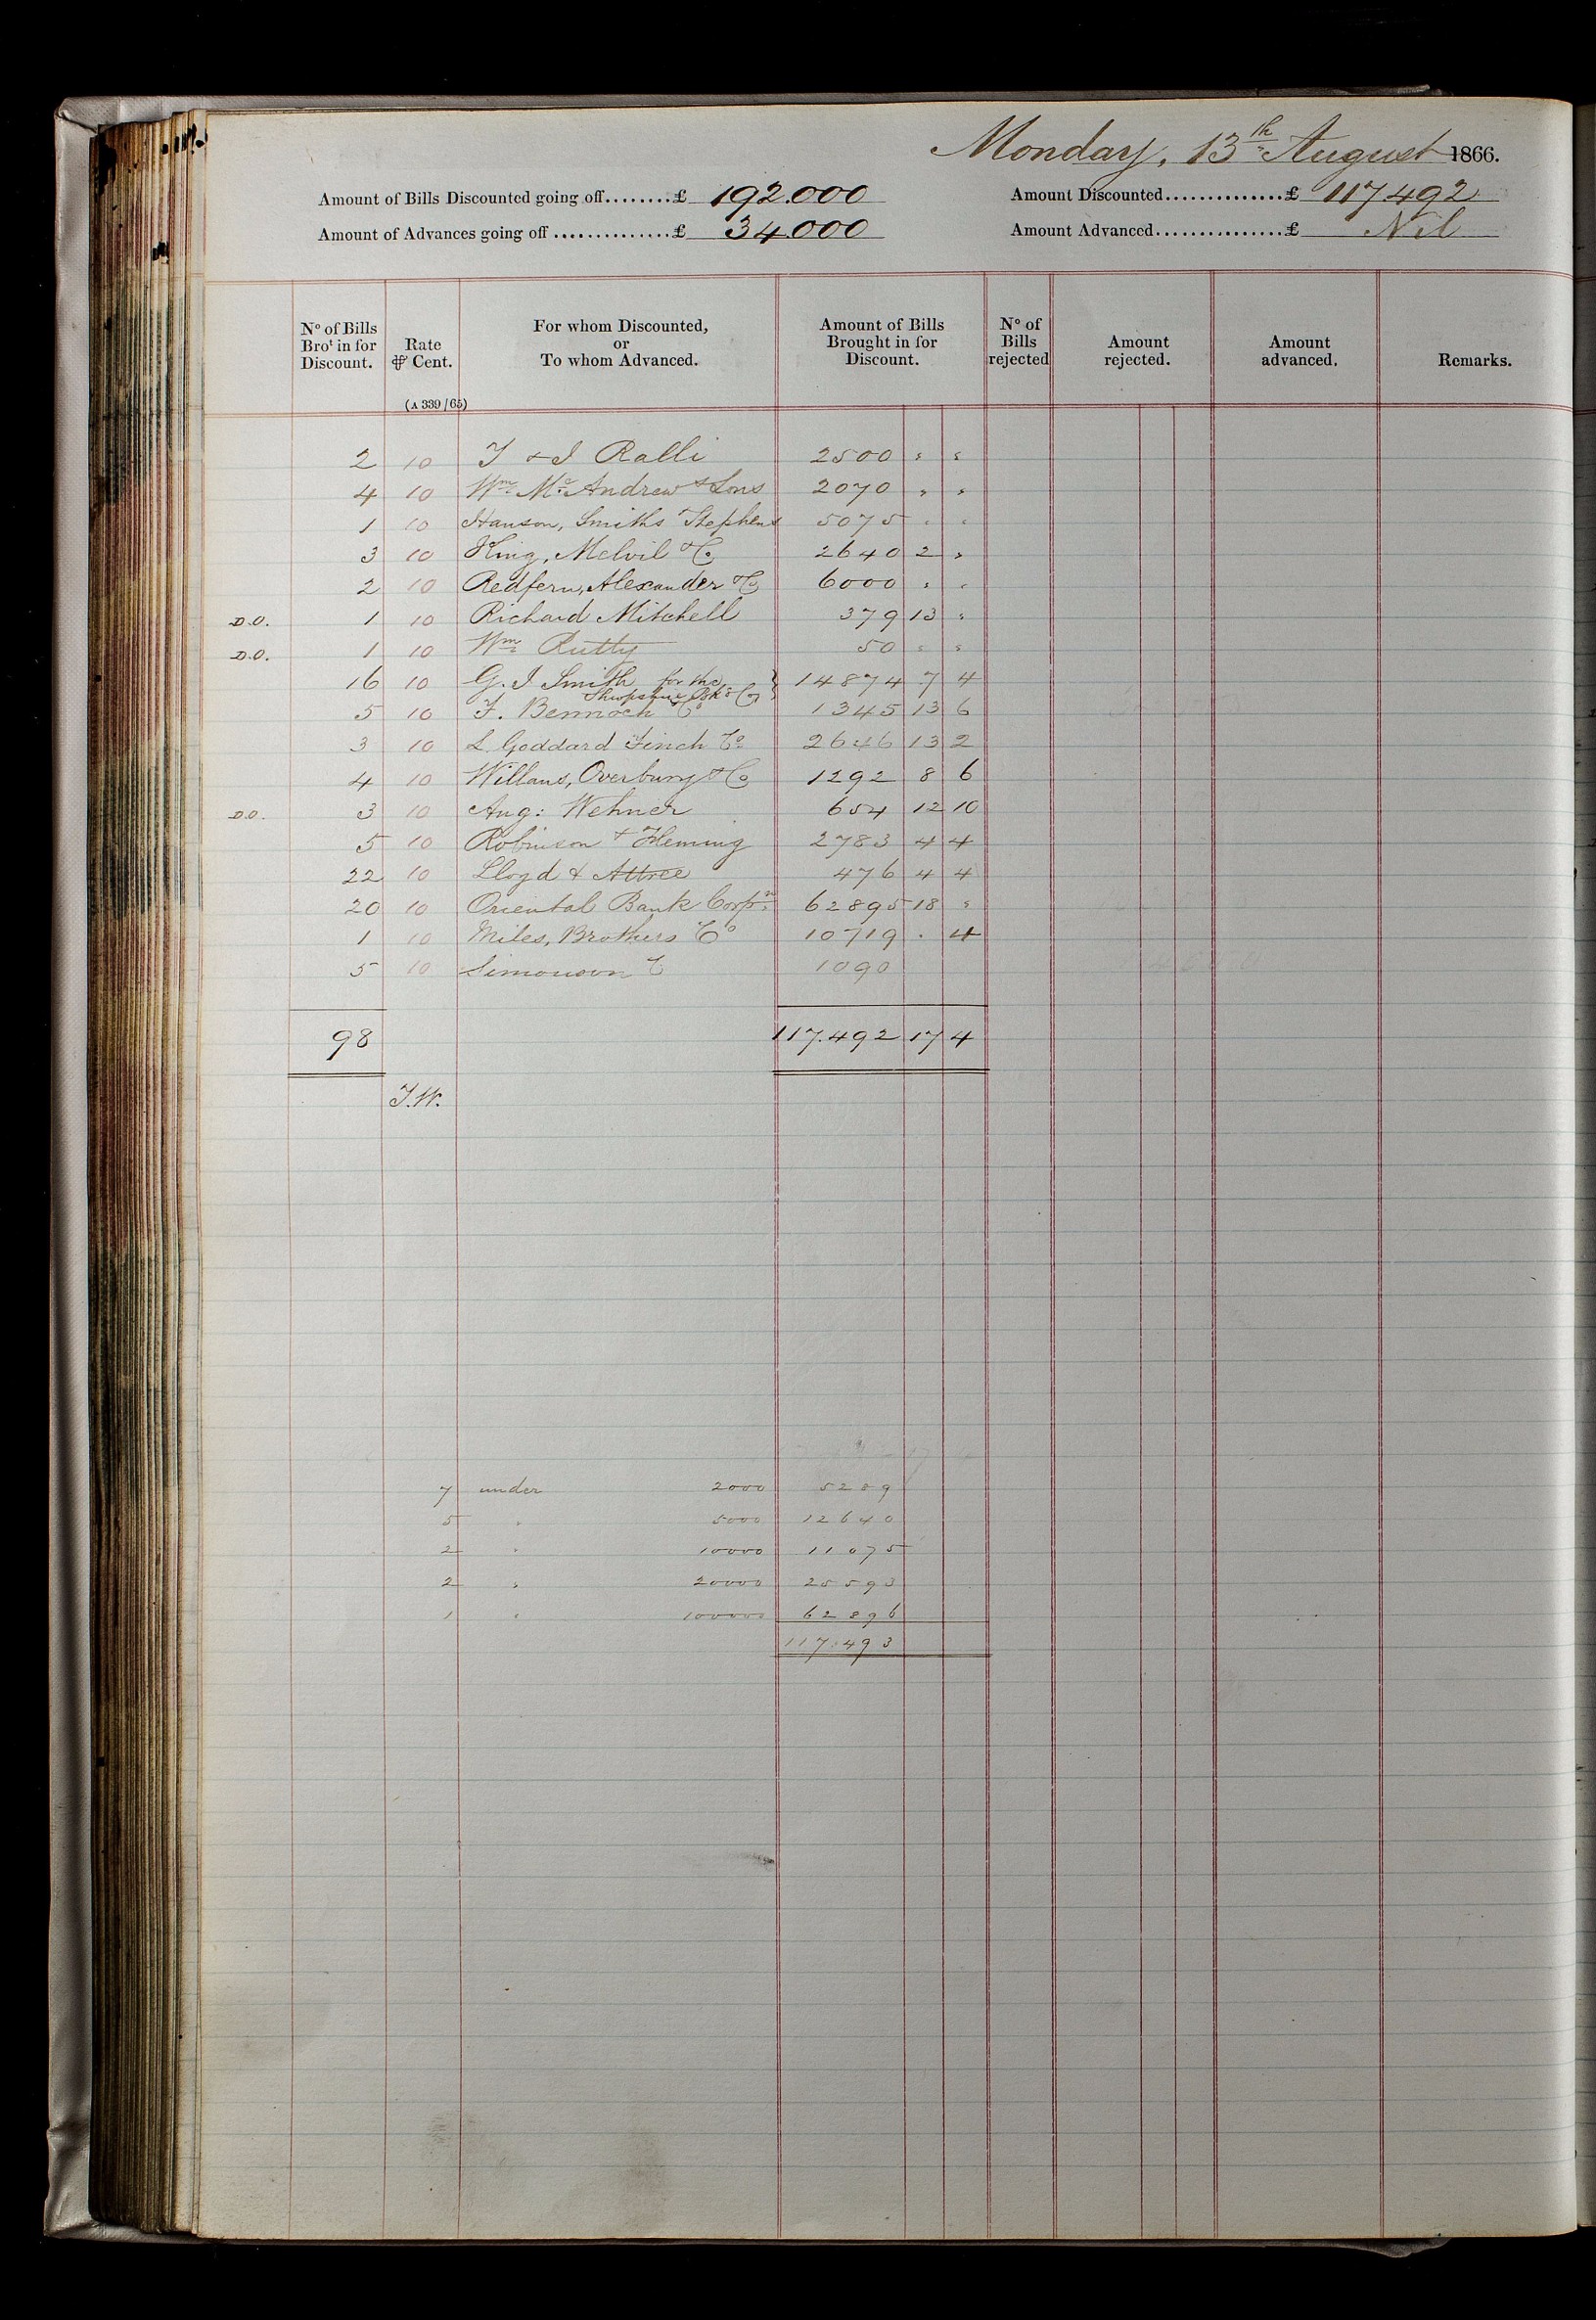 Monday, 13th August 1866.
Amount of Bills Discounted going off........£ 192.000 Amount Discounted...............£ 117492
Amount of Advances going off...............£ 34000 Amount Advanced................£ Nil
No of Bills Brot in for Discount. Rate ⅌ Cent. (A 339/65) For whom Discounted, or To whom Advanced. Amount of Bills Brought in for Discount. No of Bills rejected Amount rejected. Amount advanced. Remarks.
2 10 T & J Ralli 2500 " "
4 10 Wm McAndrew & Sons 2070 " "
1 10 Hanson, Smiths Stephens 5075 " "
3 10 King, Melvil & Co 2640 2 "
2 10 Redfern, Alexander & Co 6000 " "
D.O. 1 10 Richard Mitchell 379 13 "
D.O. 1 10 Wm Rutty 50 " "
16 10 G. J Smith for the Shropshire Bkg Co } 14874 7 4
5 10 F. Bennoch Co 1345 13 6
3 10 L. Goddard Finch Co 2646 13 2
4 10 Willans, Overbury & Co 1292 8 6
D.O. 3 10 Aug: Wehner 654 12 10
5 10 Robinson & Fleming 2783 4 4
22 10 Lloyd & Attree 476 4 4
20 10 Oriental Bank Corpn 62895 18 "
1 10 Miles, Brothers Co 10719 . 4
5 10 1090
98 117.492 17 4
J.W.
7 under 2000 5289
5 " 5000 12640
2 " 10000 11075
2 " 20000 25593
1 " 100000 62896
117.493